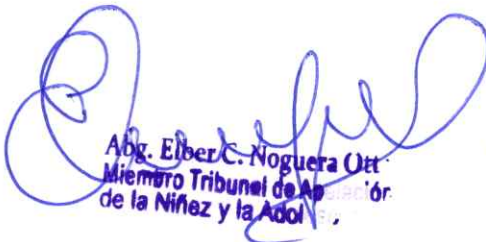 Abg. Elber C. Noguera Ott
Miembro Tribunal de Ap ór
de la Niñez y la Adol